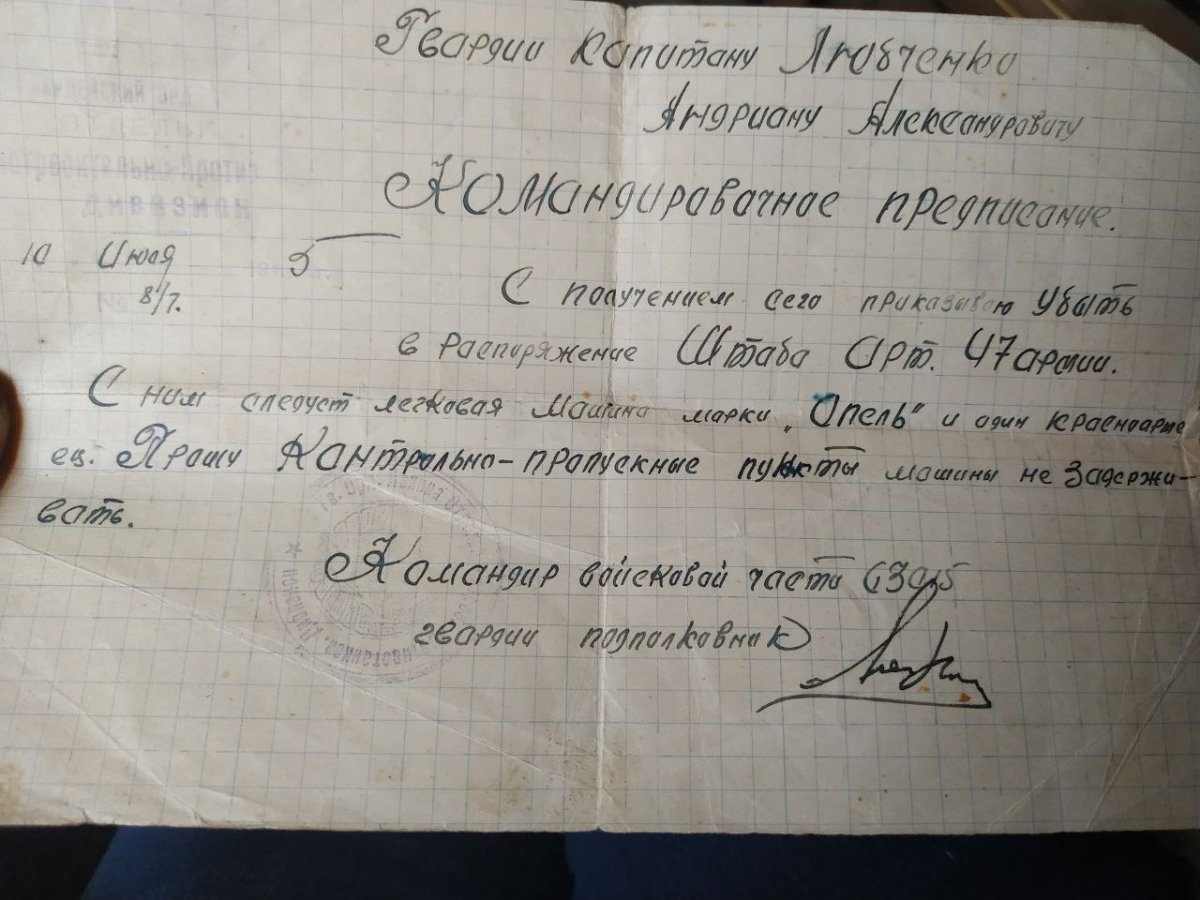 Гвардии капитану Лювченко
Андриану Александровичу
Командировачное предписание.
10 Июля 5
8/7.
С получением сего приказываю убыть
в распоряжение Штаба Арт. 47 армии.
С ним следует легковая машина марки „Опель" и один красноарме
ец. Прошу Кантрольно-пропускные пункты машины не задержи-
вать.
Командир войсковой части
гвардии подполковник